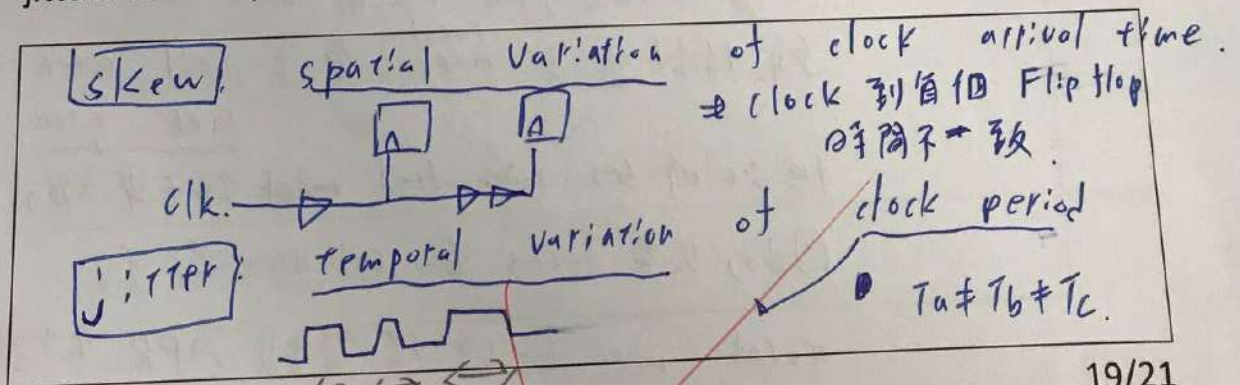 skew: spatial variation of clock arrival time.
⇒ clock 到每個 Flip flop
時間不一致.
clk.
jitter: temporal variation of clock period
Ta ≠ Tb ≠ Tc.
19/21